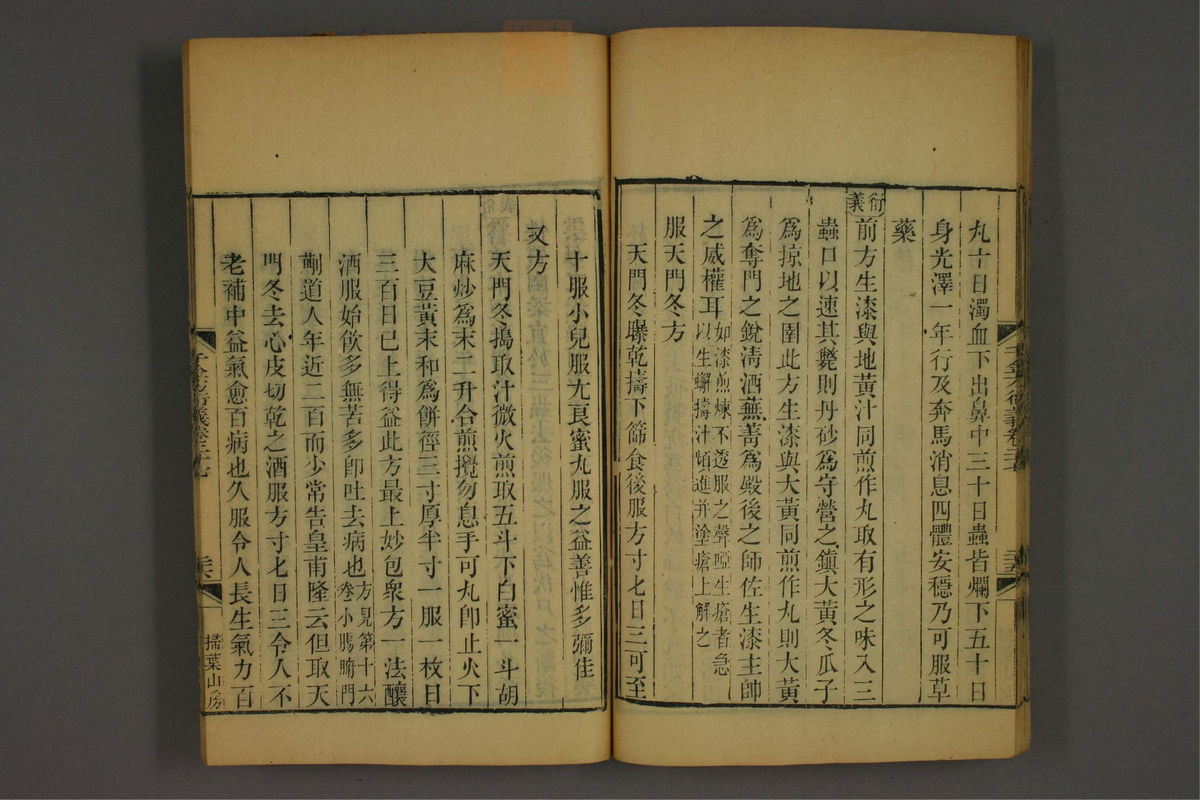 丸十日濁血下出鼻中三十日蟲皆爛下五十日
身光澤一年行及奔馬消息四體安穩乃可服草
藥
衍義
前方生漆與地黃汁同煎作丸取有形之味入三
蟲口以速其斃則丹砂爲守營之鎮大黃冬瓜子
爲掠地之圍此方生漆與大黃同煎作丸則大黃
爲奪門之銳清酒蕪菁爲殿後之師佐生漆主帥
之威權耳
如漆煎煉不透服之聲啞生瘡者急
以生蠏擣汁頻進并塗瘡上解之
服天門冬方
天門冬曝乾擣下篩食後服方寸七日三可至
十服小兒服尤良蜜丸服之益善惟多彌佳
又方
天門冬搗取汁微火煎取五斗下白蜜一斗胡
麻炒爲末二升合煎攪勿息手可丸卽止火下
大豆黃末和爲餅徑三寸厚半寸一服一枚日
三百日已上得益此方最上妙包衆方一法釀
酒服始飲多無苦多卽吐去病也
方見第十六
卷小腸腑門
蒯道人年近二百而少常告皇甫隆云但取天
門冬去心皮切乾之酒服方寸七日三令人不
老補中益氣愈百病也久服令人長生氣力百
千金方衍義卷二十七
掃葉山房